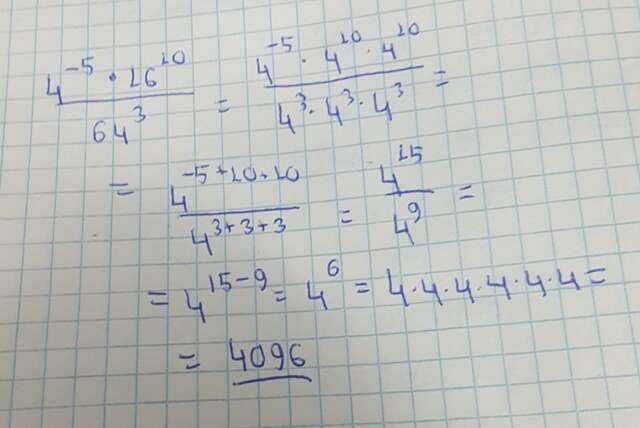 4^{-5} · 16^{10} / 64^{3} = 4^{-5} · 4^{10} · 4^{10} / 4^{3} · 4^{3} · 4^{3} =
= 4^{-5+10+10} / 4^{3+3+3} = 4^{15} / 4^{9} =
= 4^{15-9} = 4^{6} = 4·4·4·4·4·4 =
= 4096